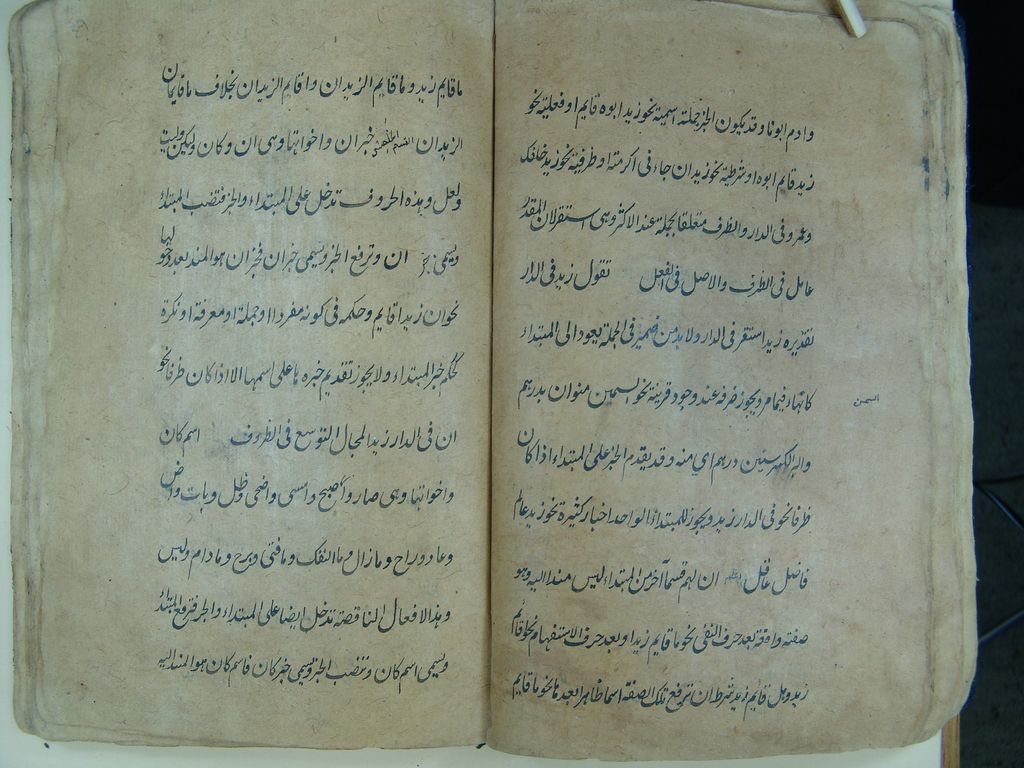 وادم ابونا وقد يكون الخبر جملة اسمية نحو زيد ابوه قايم او فعلية نحو
زيد قايم ابوه او شرطية نحو زيد ان جاءنى اكرمته او ظرفية نحو زيد خلفك
وعمرو فى الدار والظرف متعلق بجملة عند الاكثر وهى استقر لان المقدر
عامل فى الظرف والاصل فى الفعل تقول زيد فى الدار
تقديره زيد استقر فى الدار ولابد من ضمير فى الجملة يعود الى المبتداء
كالهاء فيما مر ويجوز حذفه عند وجود قرينة نحو السمن منوان بدرهم
السمن
والبر الكر بستين درهم اى منه وقد يقدم الخبر على المبتداء اذا كان
ظرفا نحو فى الدار زيد ويجوز للمبتداء الواحد اخبار كثيرة نحو زيد عالم
فاضل عاقل اعلم ان لهم قسما آخر من المبتداء ليس مسندا اليه وهو
صفة واقعة بعد حرف النفى نحو ما قايم زيد او بعد حرف الاستفهام نحو اقايم
زيد وهل قايم زيد بشرط ان ترفع تلك الصفة اسما ظاهرا بعدها نحو ما قايم
ما قايم زيد وما قايم الزيدان واقايم الزيدان بخلاف ما قايمان
الزيدان خبر ان واخواتها وهى ان وكان ولكن وليت
ولعل وهذه الحروف تدخل على المبتداء والخبر فتنصب المبتداء
ويسمى ان وترفع الخبر ويسمى خبر ان فخبر ان هو المسند بعد دخولها
نحو ان زيدا قايم وحكمه فى كونه مفردا او جملة او معرفة او نكرة
كحكم خبر المبتداء ولا يجوز تقديم خبرها على اسمها الا اذا كان ظرفا نحو
ان فى الدار زيدا لمجال التوسع فى الظروف اسم كان
واخواتها وهى صار واصبح وامسى واضحى وظل وبات واض
وعاد وراح وما زال وما انفك وما فتى وما برح وما دام وليس
وهذ الافعال الناقصة تدخل ايضا على المبتداء والخبر فترفع المبتداء
ويسمى اسم كان وتنصب الخبر ويسمى خبر كان فاسم كان هو المسند اليه